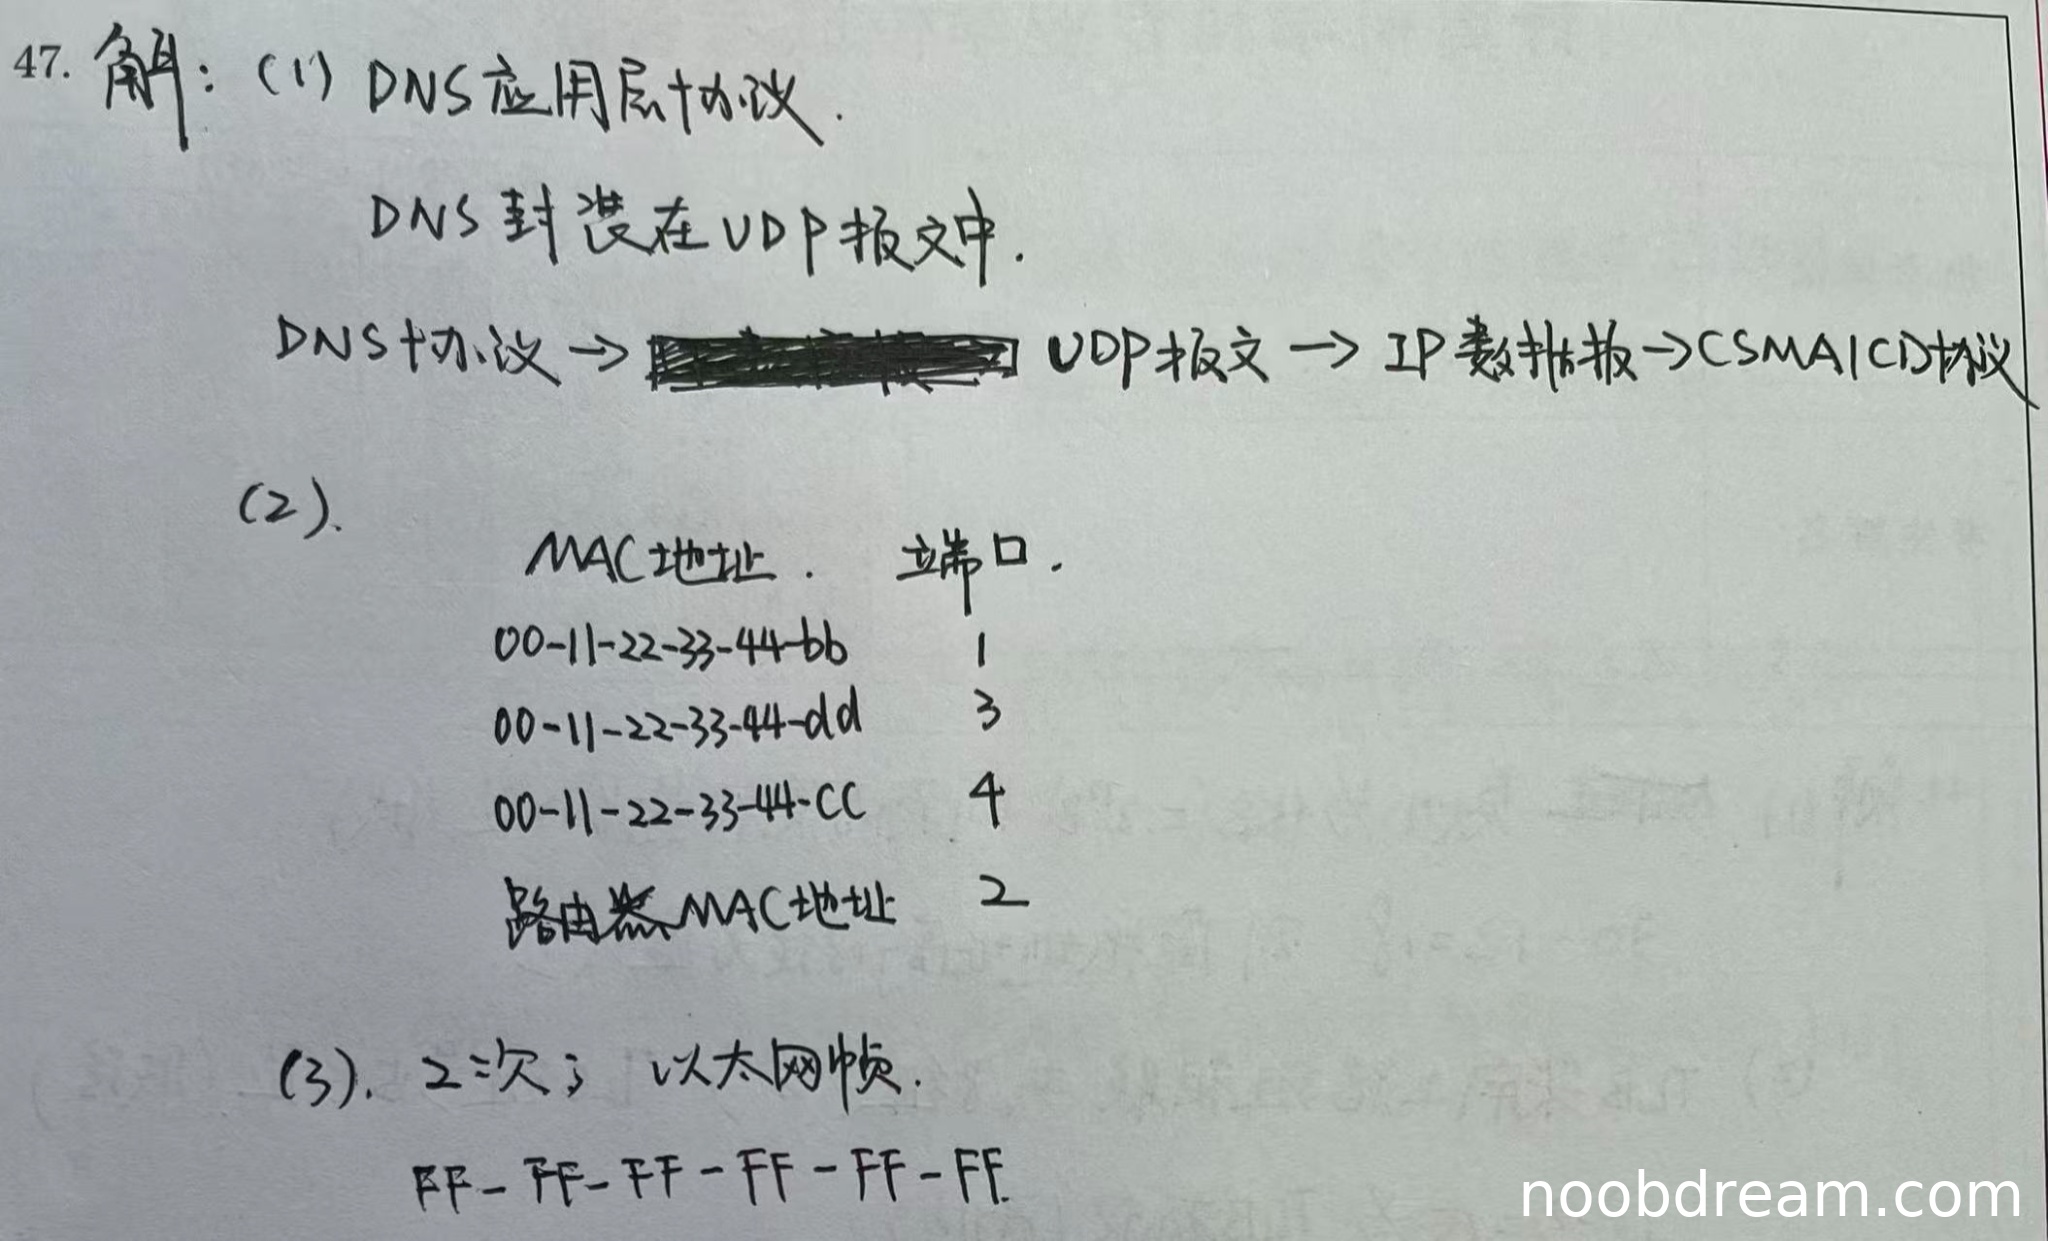 47. 解：(1) DNS应用层协议.
DNS封装在UDP报文中.
DNS协议→ UDP报文→IP数据报→CSMA/CD协议
(2).
MAC地址. 端口.
00-11-22-33-44-bb 1
00-11-22-33-44-dd 3
00-11-22-33-44-CC 4
路由器MAC地址 2
(3). 2次; 以太网帧.
FF-FF-FF-FF-FF-FF.
noobdream.com